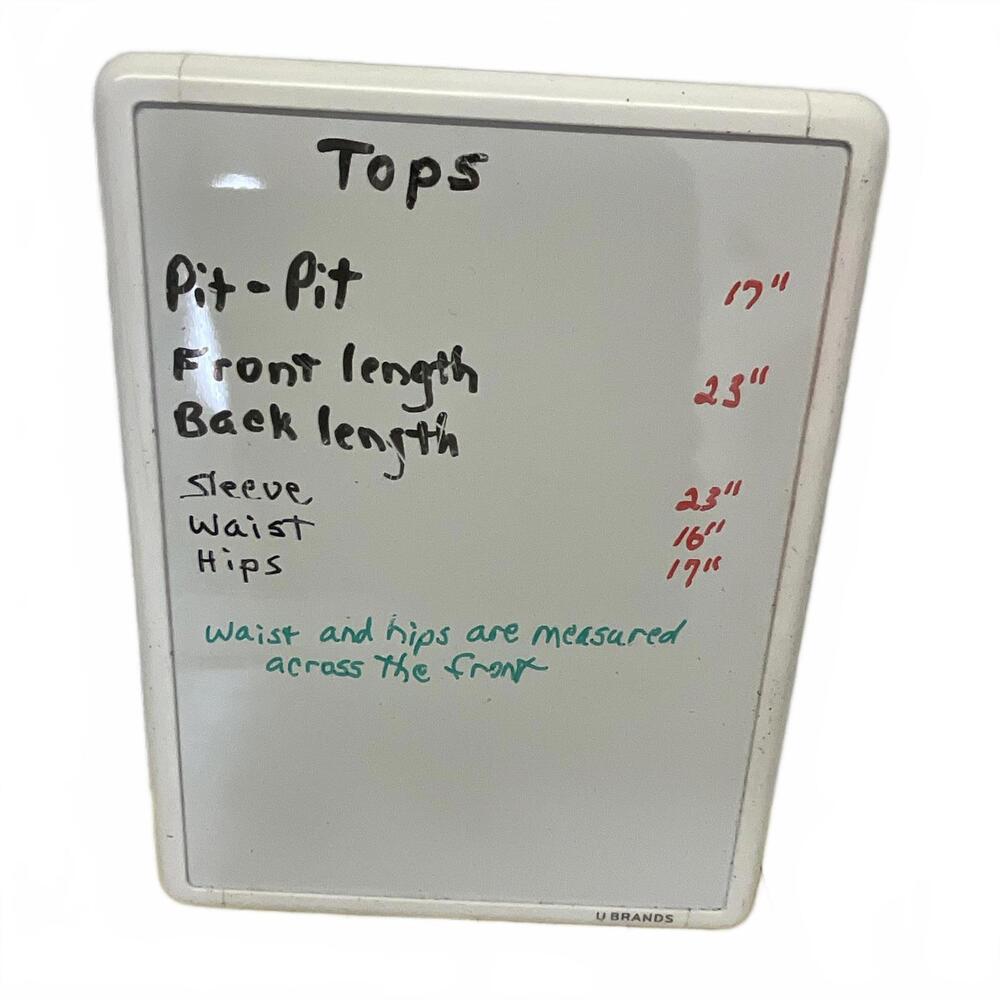 Tops
Pit-Pit 17"
Front length 23"
Back length
Sleeve 23"
Waist 16"
Hips 17"
Waist and hips are measured
across the front
U BRANDS